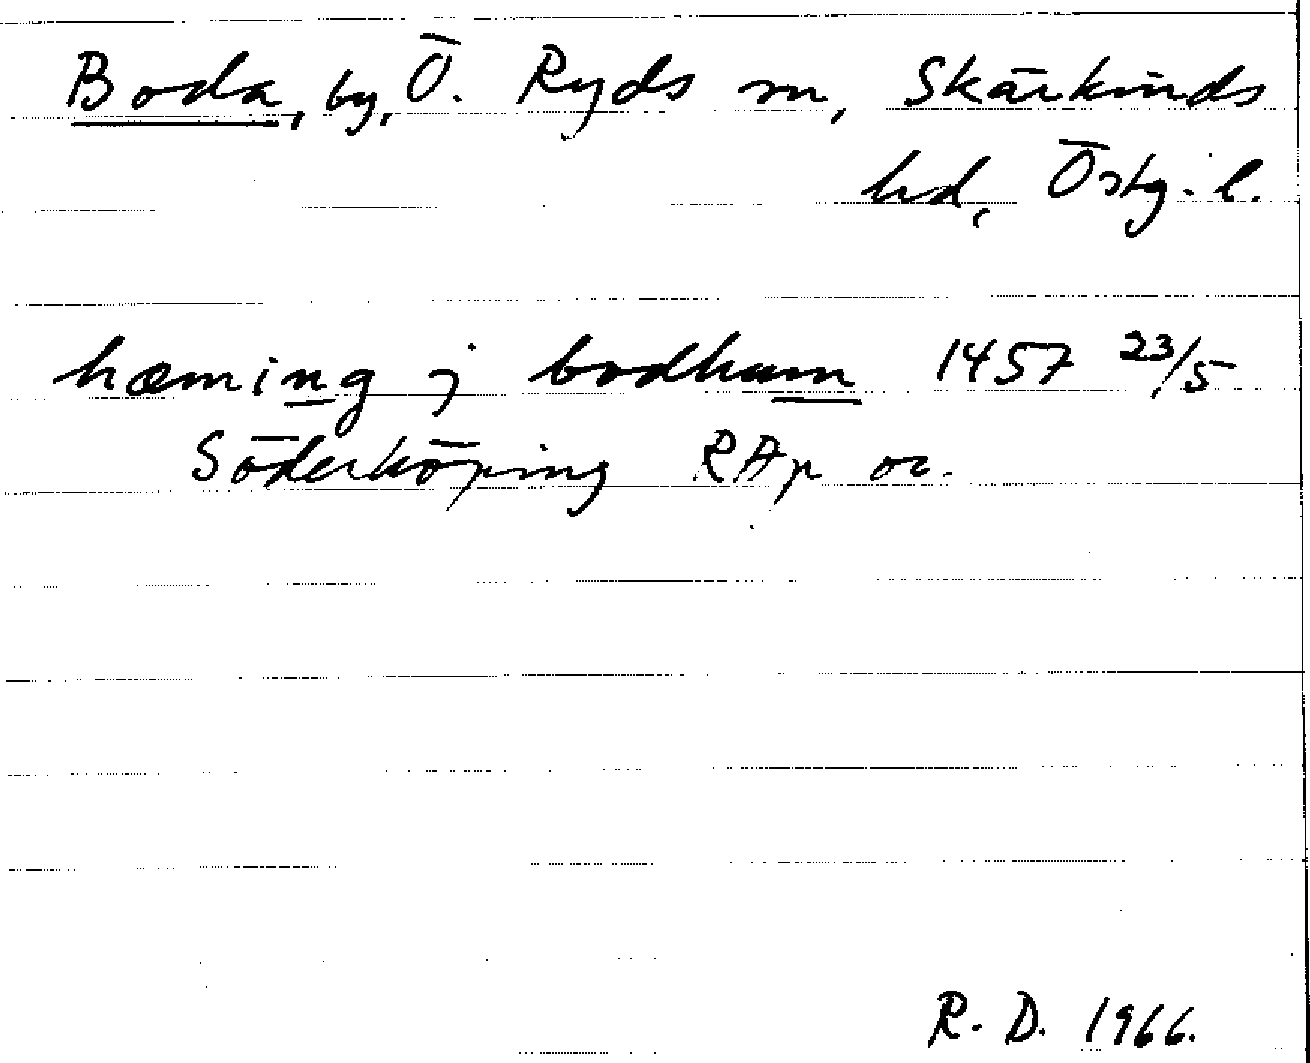 Boda, by, Ö. Ryds sn, Skärkinds
hd, Östg. l.
hæming j bodhum 1457 23/5
Söderköping RAp or.
R. D. 1966.